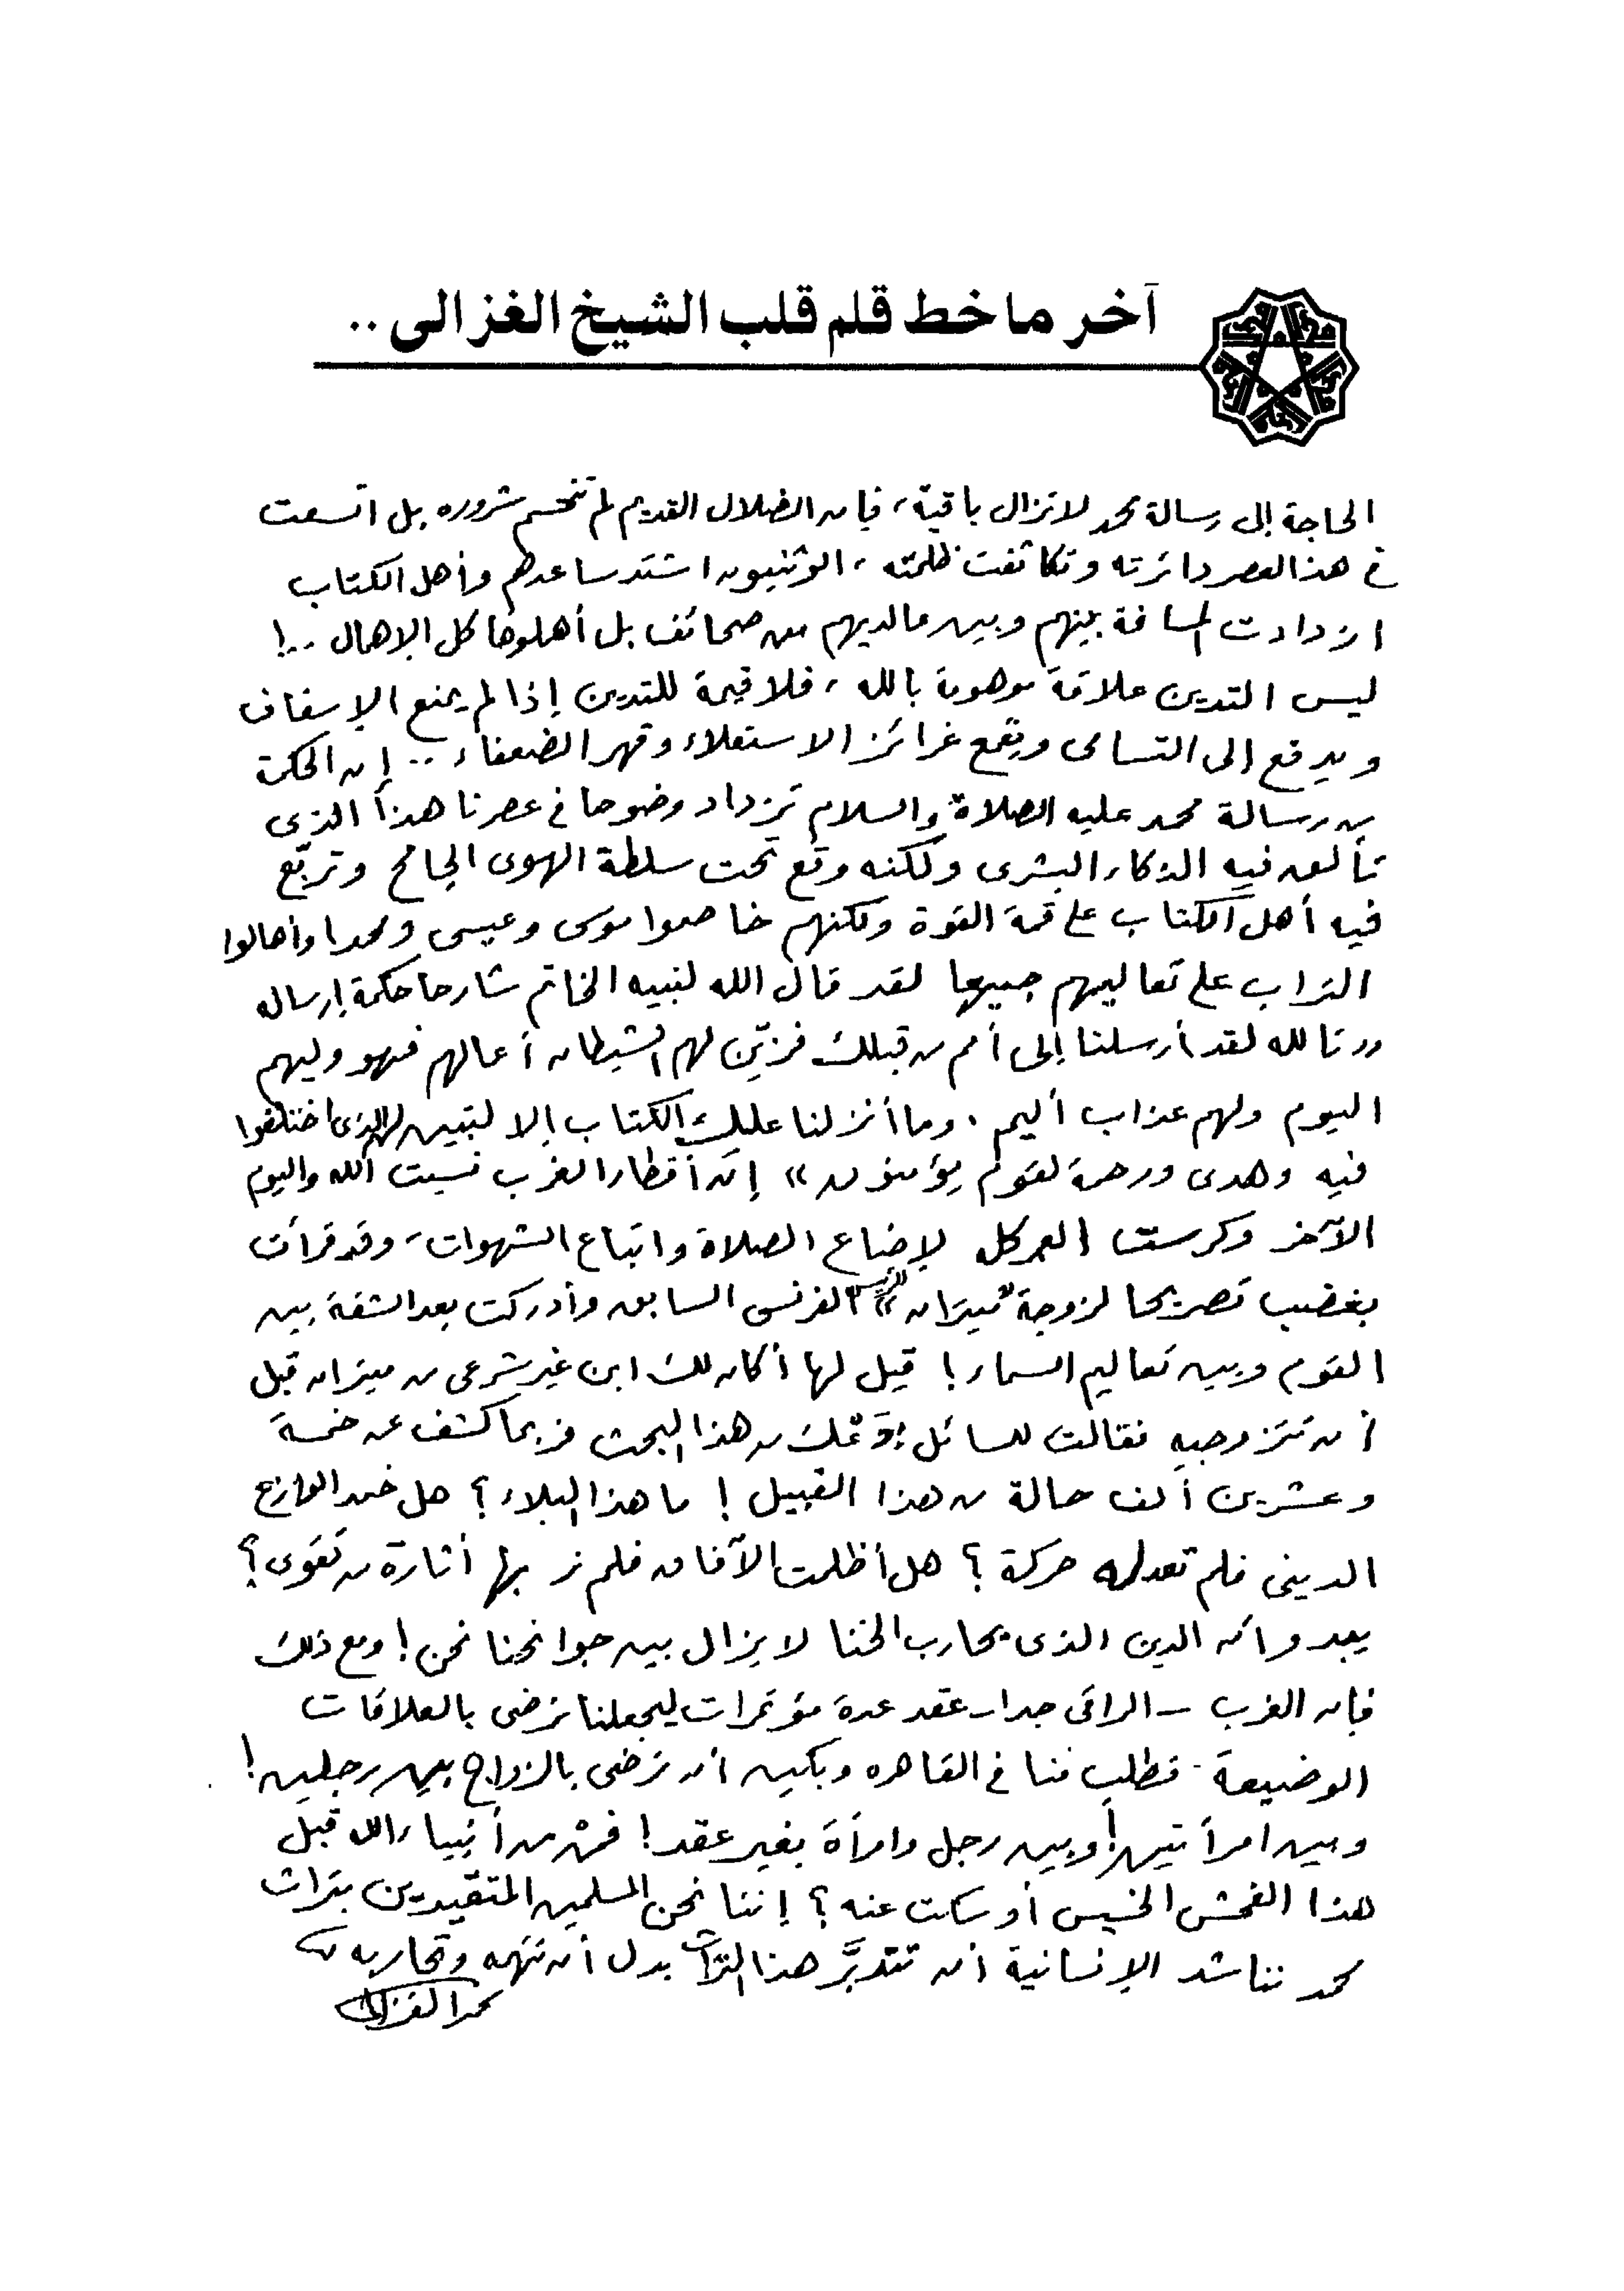 آخر ما خط قلم قلب الشيخ الغزالى ..
الحاجة إلى رسالة محمد لا تزال باقية، فإن الضلال القديم لم تنحسم شروره بل اتسعت
فى هذا العصر دائرته وتكاثفت ظلمته، الوثنيون اشتد ساعدهم وأهل الكتاب
ازدادت المسافة بينهم وبين ما لديهم من صحائف بل أهملوها كل الإهمال ..!
ليس التدين علاقة موهومة بالله، فلا قيمة للتدين إذا لم يمنع الإسفاف
ويدفع إلى التسامى ويقمع غرائز الاستعلاء وقهر الضعفاء .. إن الحكمة
من رسالة محمد عليه الصلاة والسلام تزداد وضوحا فى عصرنا هذا الذى
تألق فيه الذكاء البشرى ولكنه وقع تحت سلطة الهوى الجامح وتربّع
فيه أهل الكتاب على قمة القوة ولكنهم خاصموا موسى وعيسى ومحمدا وأهالوا
التراب على تعاليمهم جميعا لقد قال الله لنبيه الخاتم شارحا حكمة إرساله
"تالله لقد أرسلنا إلى أمم من قبلك فزيّن لهم الشيطان أعمالهم فهو وليهم
اليوم ولهم عذاب أليم. وما أنزلنا عليك الكتاب إلا لتبين لهم الذى اختلفوا
فيه وهدى ورحمة لقوم يؤمنون" إن أقطار الغرب نسيت الله واليوم
الآخر وكرست العمر كله لإضاعة الصلاة واتباع الشهوات، وقد قرأت
بغضب تصريحا لزوجة "ميتران" الرئيس الفرنسى السابق وأدركت بعد الشقة بين
القوم وبين تعاليم السماء! قيل لها أكان لك ابن غير شرعى من ميتران قبل
أن تتزوجيه فقالت للسائل دعك من هذا البحث فربما كشف عن خمسة
وعشرين ألف حالة من هذا القبيل! ما هذا البلاء؟ هل خمد الوازع
الدينى فلم تعد له حركة؟ هل أظلمت الآفاق فلم نر بها أثارة من تقوى؟
يبدو أن الدين الذى يحارب الخنا لا يزال بين جوانحنا نحن! ومع ذلك
فإن الغرب - الراقى جدا - عقد عدة مؤتمرات ليجعلنا نرضى بالعلاقات
الوضيعة - فطلب منا فى القاهره وبكين أن نرضى بالزواج بين رجلين!
وبين امرأتين! وبين رجل وامرأة بغير عقد! فمن من أنبياء الله قبل
هذا الفحش الخسيس أو سكت عنه؟ إننا نحن المسلمين المتقيدين بتراث
محمد نناشد الإنسانية أن تتدبّر هذا التراث بدل أن تتهمه وتحاربه
محمد الغزالى